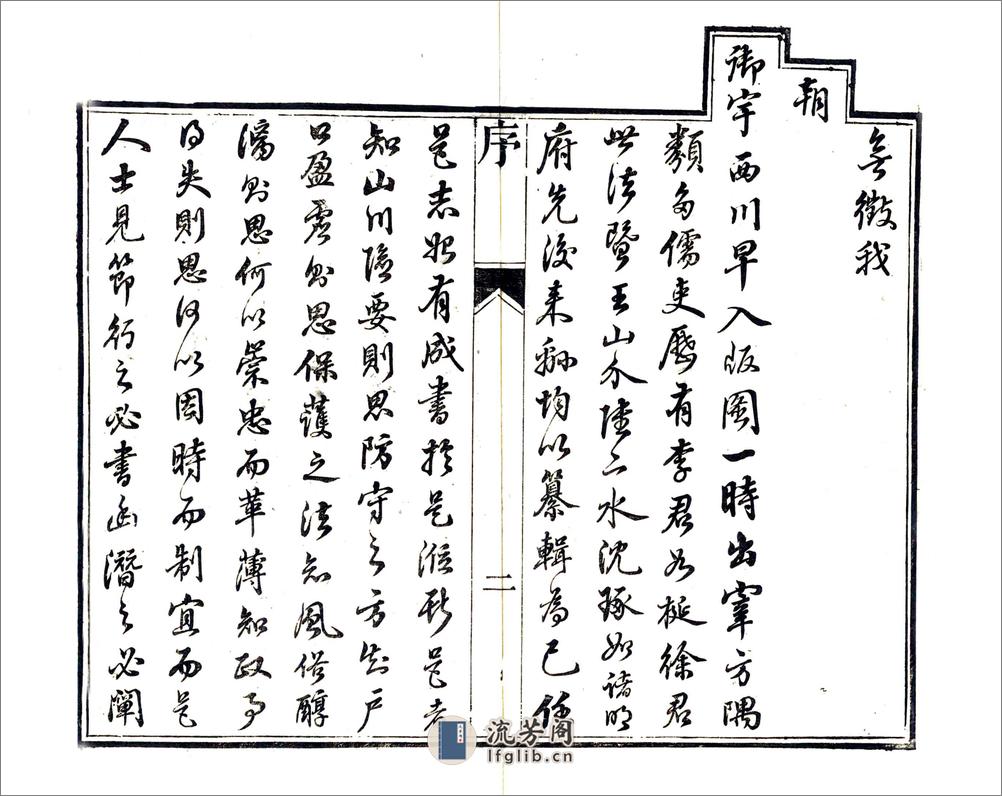 無徵我
朝
御宇西川早入版圖一時出宰方隅
類多儒吏歷有李君如梃徐君
此法暨王山介陸二水沈琢如諸明
府先後來 均以纂輯為己任
邑志始有成書於是 斯邑者
知山川險要則思防守之方知戶
口盈虛則思保護之法知風俗醇
漓則思何以崇忠而革薄知政事
得失則思何以因時而制宜而邑
人士見節行之必書幽潛之必闡
序
二
流芳阁
lfglib.cn